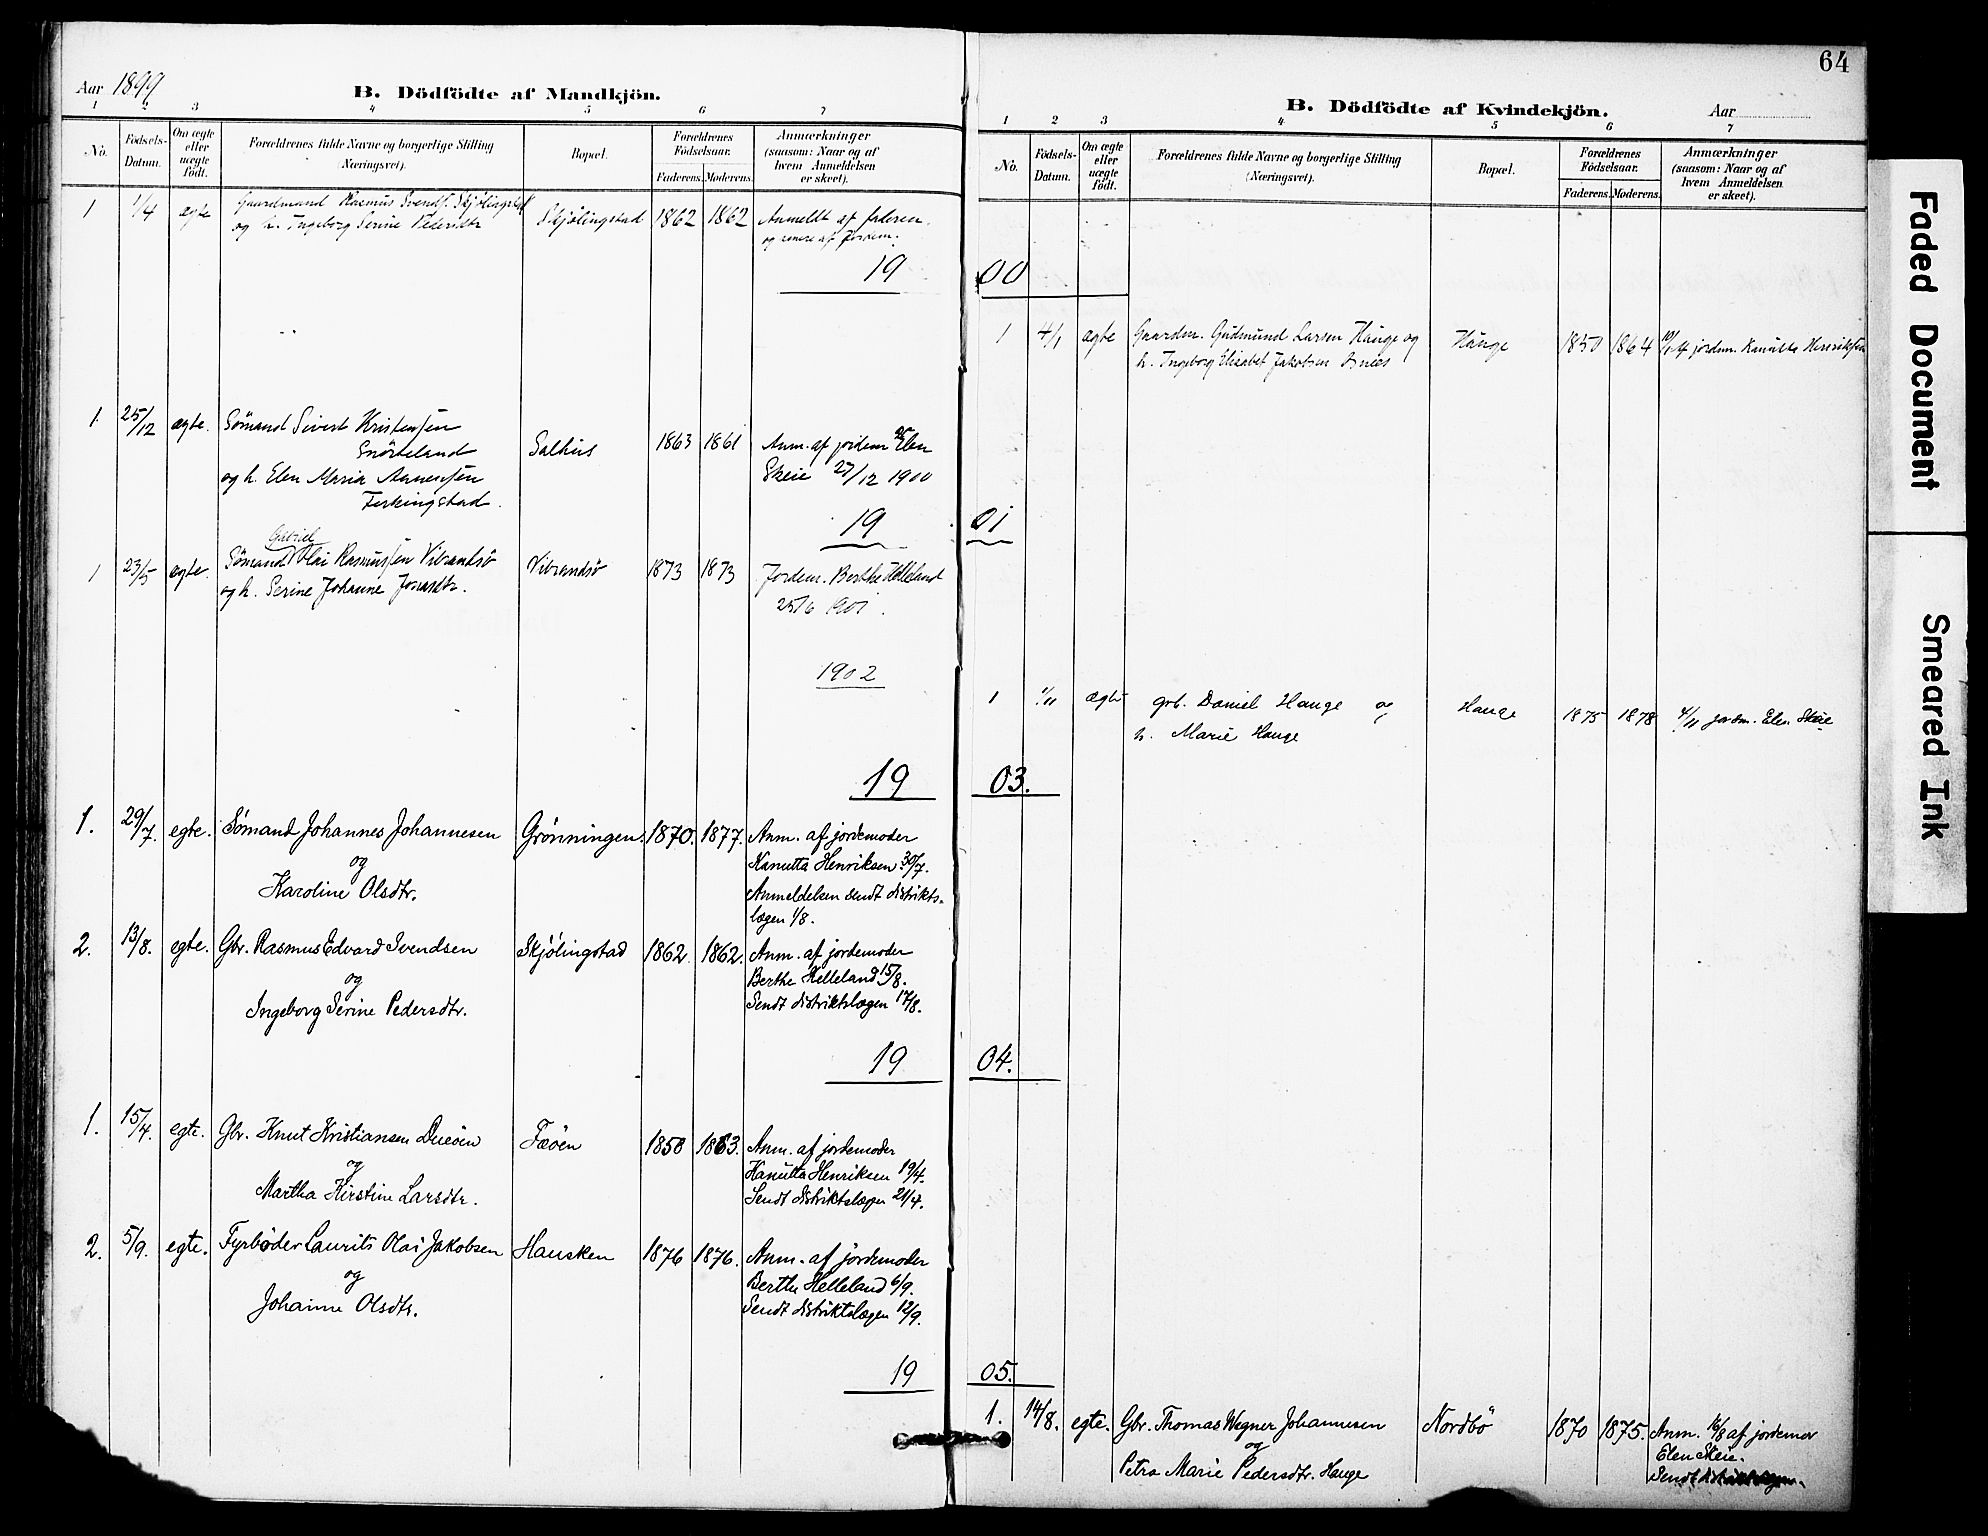 Aar 1899
B. Dödfödte af Mandkjön.
1 2 3 4 5 6 7
No.
Födsels-
Datum.
Om ægte
eller
uægte
födt.
Forældrenes fulde Navne og borgerlige Stilling
(Næringsvei).
Bopæl.
Forældrenes
Födselsaar.
Faderens. Moderens.
Anmærkninger
(saasom: Naar og af
hvem Anmeldelsen
er skeet).
1 1/4 ægte Gaardmand Rasmus Svends. Skjölingstad Skjölingstad 1862 1862 Anmeldt af faderen
og h. Ingeborg Serine Pedersdtr og senere af Jordem.
19
1 25/12 ægte. Sömand Sivert Kristensen
Snörteland Salhus 1863 1861 Anm. af jordem Elen
og h. Elen Maria Annensen Skeie 27/12 1900
Ferkingstad.
19
Gabriel
1 23/5 ægte. Sömand Olai Rasmussen Vibrandsö Vibrandsö 1873 1873 Jordem. Berthe Helleland
og h. Serine Johanne Jonasdtr. 25/6 1901.
1902
19
1. 29/7. egte. Sömand Johannes Johannesen Grönningen. 1870. 1877. Anm. af jordemoder
og Kanutta Henriksen 30/7.
Karoline Olsdtr. Anmeldelsen sendt distrikts-
lægen 1/8.
2. 13/8. egte. Gbr. Rasmus Edvard Svendsen Skjölingstad 1862. 1862. Anm. af jordemoder
og Berthe Helleland 15/8.
Ingeborg Serine Pedersdtr. Sendt distriktslægen 17/8.
19
1. 15/4. egte. Gbr. Knut Kristiansen Dueöen Fæöen 1850 1863. Anm. af jordemoder
og Kanutta Henriksen 19/4.
Martha Kirstine Larsdtr. Sendt distriktslægen 21/4.
2. 5/9. egte. Fyrböder Laurits Olai Jakobsen Hausken 1876 1876. Anm. af jordemoder
og Berthe Helleland 6/9.
Johanne Olsdtr. Sendt distriktslægen 12/9.
19
64
B. Dödfödte af Kvindekjön.
Aar
1 2 3 4 5 6 7
No.
Födsels-
Datum.
Om ægte
eller
uægte
födt.
Forældrenes fulde Navne og borgerlige Stilling
(Næringsvei).
Bopæl.
Forældrenes
Födselsaar.
Faderens. Moderens.
Anmærkninger
(saasom: Naar og af
hvem Anmeldelsen
er skeet).
00
1 4/1 ægte Gaardm. Gudmund Larsen Hauge og Hauge 1850 1864 10/1 af jordem. Kanutta Henriksen
h. Ingeborg Elisabet Jakobsen
01
1 1/11 ægte grb. Daniel Hauge og Hauge 1875 1878 4/11 jordm. Elen Skeie
h. Marie Hauge
03.
04.
05.
1. 14/8. egte. Gbr. Thomas Wegner Johannesen Nordbö 1870 1875. Anm. 16/8 af jordemor
og Elen Skeie.
Petra Marie Pedersdtr. Hauge Sendt distriktslægen.
Faded Document
Smeared Ink